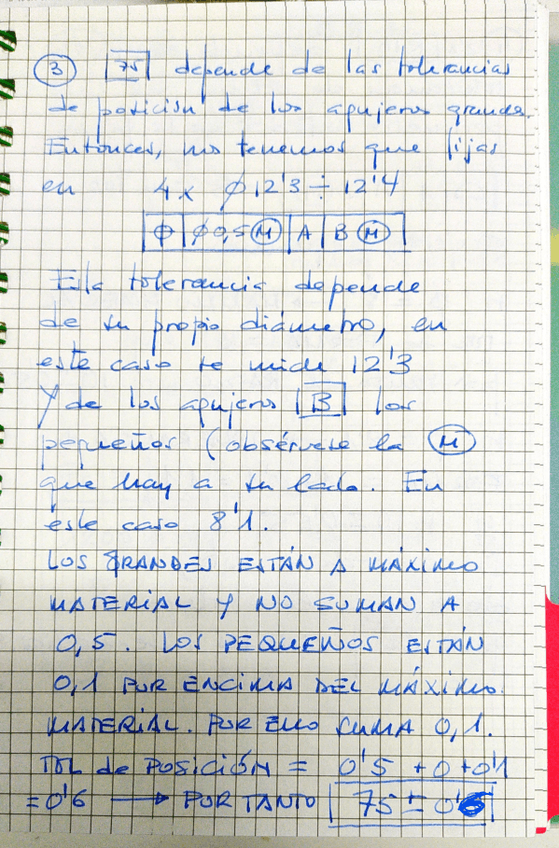 ③ 75 depende de las tolerancias
de posición de los agujeros grandes.
Entonces, nos tenemos que fijar
en 4x φ 12'3 ÷ 12'4
⌖ φ0,5 Ⓜ A B Ⓜ
Esta tolerancia depende
de su propio diámetro, en
este caso se mide 12'3
Y de los agujeros B los
pequeños (obsérvese la Ⓜ
que hay a su lado. En
este caso 8'1.
LOS GRANDES ESTÁN A MÁXIMO
MATERIAL Y NO SUMAN A
0,5. LOS PEQUEÑOS ESTÁN
0,1 POR ENCIMA DEL MÁXIMO
MATERIAL. POR ELLO SUMA 0,1.
TOL de POSICIÓN = 0'5 + 0 + 0'1
= 0'6 → POR TANTO 75 ± 0'6